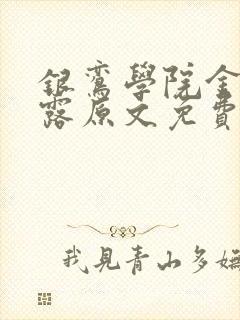 銀鸞學院金
露原文免費
我見青山多嫵